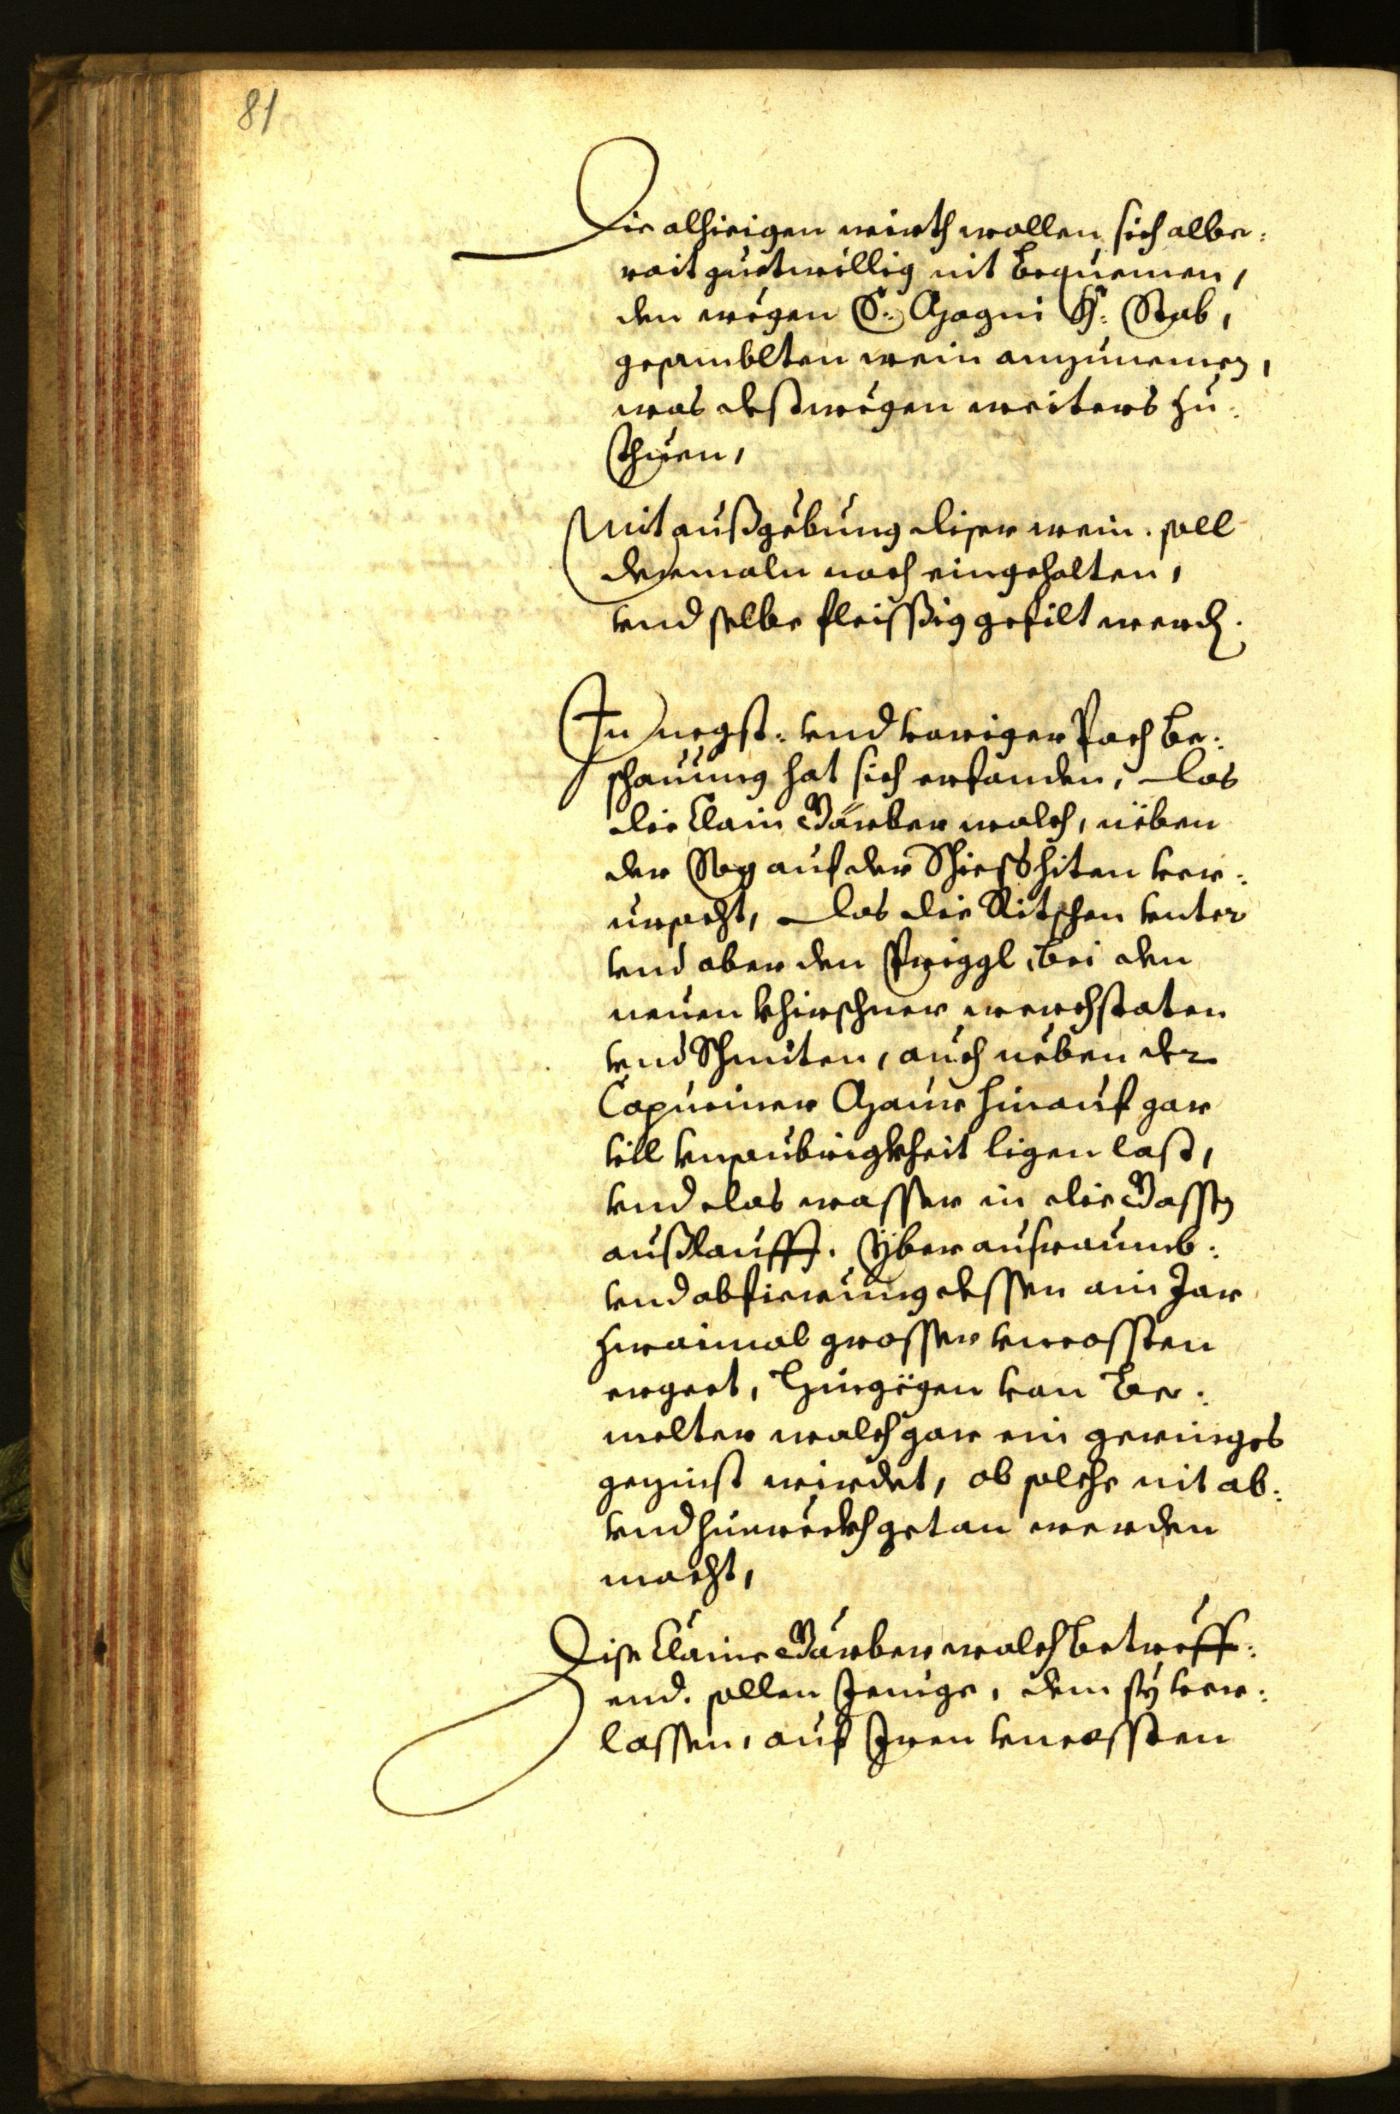 81
Die alhieigen wirth wollen sich albe:
rait guetwillig nit bequemen,
den wegen S: Magni H: Stab,
gesamblten wein anzunemen,
was desswegen weiters zu:
thuen,
Mit außgebung diser wein. soll
dermaln noch eingehalten,
vnd selbe fleissig gefilt werden.
In negst. vnd voriger Pach be:
schauung hat sich erfunden, das
die klain Värber walch, neben
der Seg auf der Schieshiten ver:
ursacht, das die Ritschen vnter
vnd ober den Priggl, bei den
neuen khirschner werchstaten
vnd Schmiten, auch neben der
Capuciner Maur hinauf gar
vill vnsaubrigkheit ligen last,
vnd das wasser in die Gassen
außlaufft. yber aufraumb:
vnd abfierung dessen ain Jar
zwaimal grosser vncossten
ergeet, hingegen von be:
melter walch gar ein geringes
gezinst wirdet, ob solche nit ab:
vnd zuruckh getan werden
mecht,
Dise klaine Värber walch betreff:
end. sollen Jenige, dem sy ver:
lassen, auf Iren vncossten